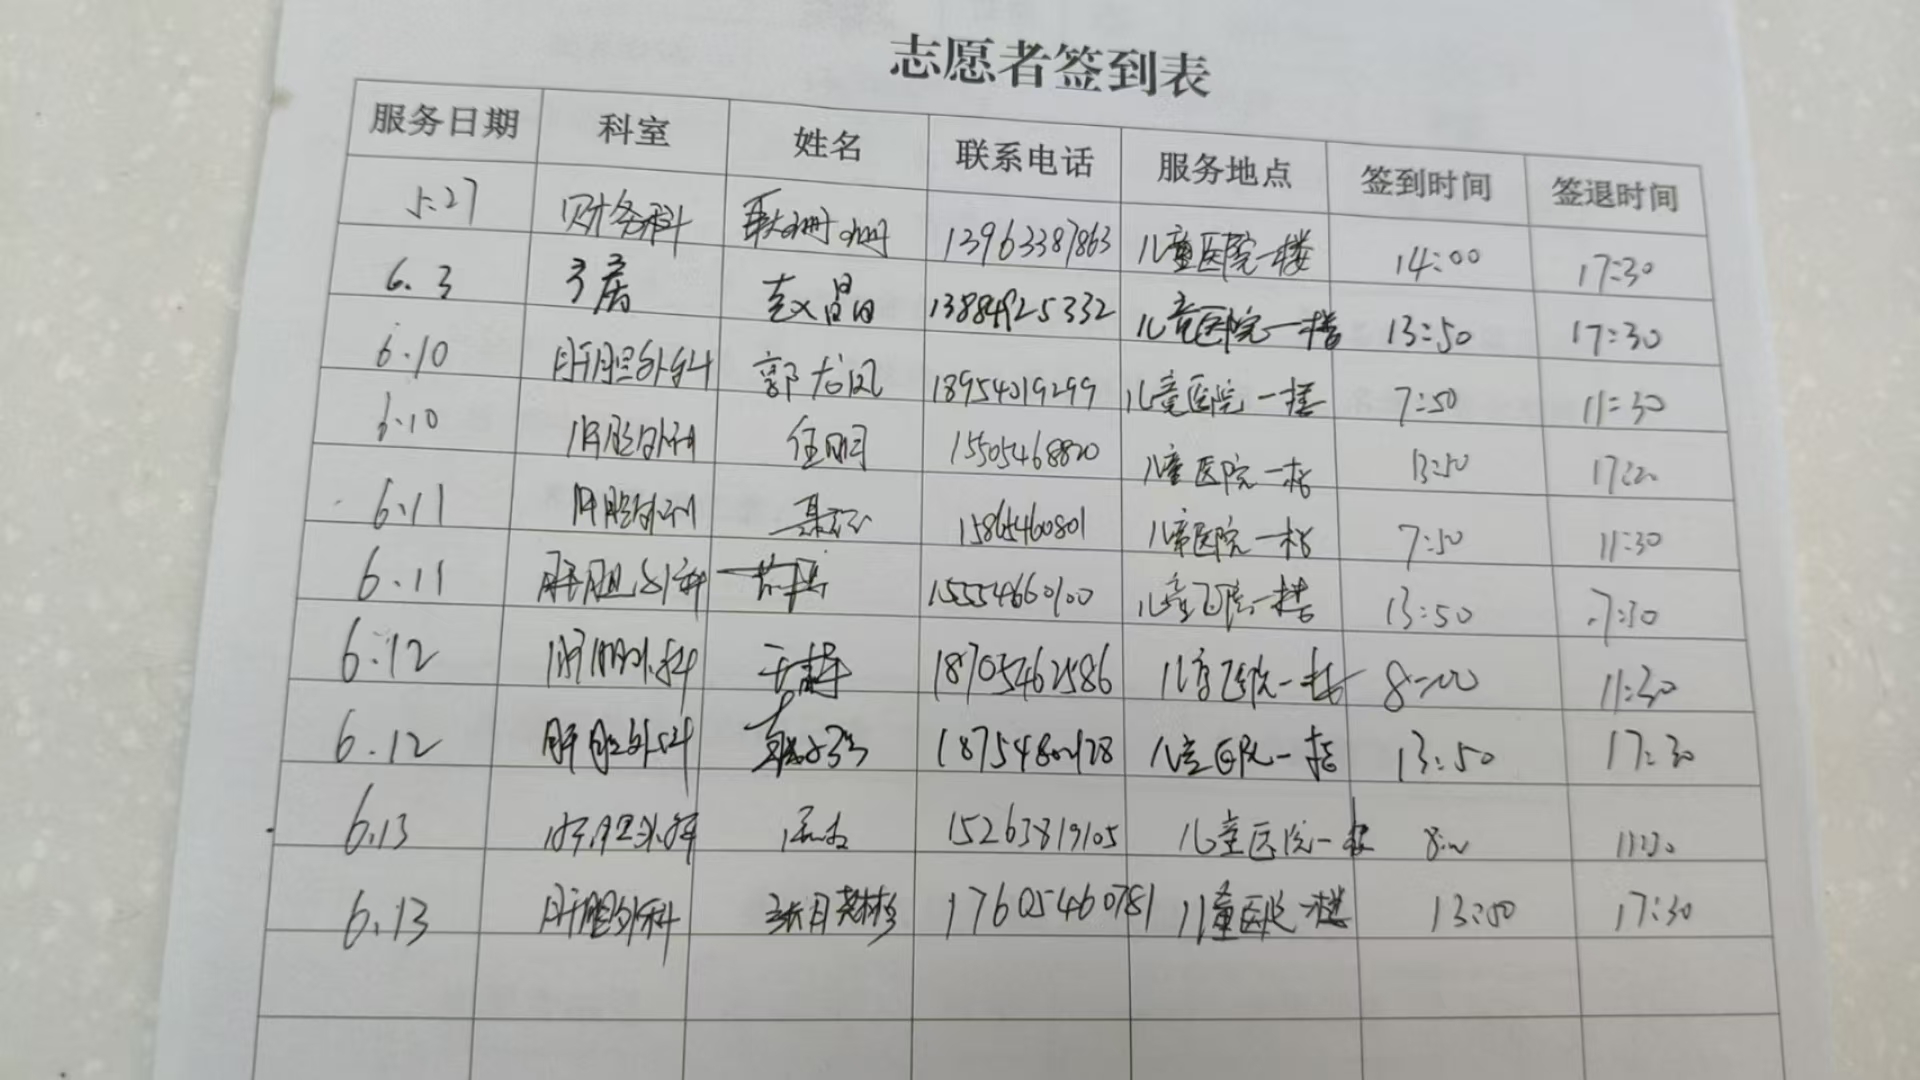 志愿者签到表
服务日期 科室 姓名 联系电话 服务地点 签到时间 签退时间
5.27 财务科 13963387863 儿童医院一楼 14:00 17:30
6.3 赵晶 13884925332 儿童医院一楼 13:50 17:30
6.10 肝胆外科 郭龙凤 18954019299 儿童医院一楼 7:50 11:30
6.10 肝胆外科 任明月 15505468820 儿童医院一楼 13:50 17:20
6.11 肝胆外科 15865460801 儿童医院一楼 7:50 11:30
6.11 肝胆外科 15554660100 儿童医院一楼 13:50
6.12 肝胆外科 18705462586 儿童医院一楼 8:00 11:30
6.12 肝胆外科 儿童医院一楼 13:50 17:30
6.13 肝胆外科 15263819105 儿童医院一楼 11:30
6.13 肝胆外科 17605460781 儿童医院一楼 13:50 17:30